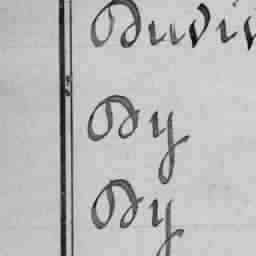 Duvi
Dy
Dy